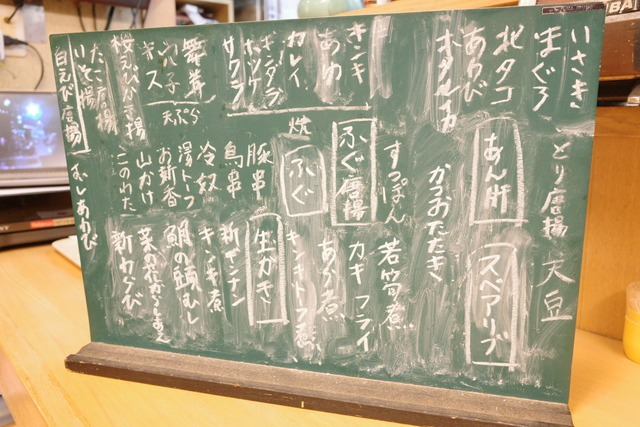 いさき
まぐろ
北タコ
あわび
ホタルイカ
キンキ
あゆ
カレイ
ギンダラ
ホッケ
サワラ
焼
舞茸
穴子
キス
天ぷら
桜えびかき揚
たこ唐揚
いそ揚
白えび唐揚
とり唐揚
天豆
あん肝
スペアリブ
かつおたたき
すっぽん
若筍煮
ふぐ唐揚
カキフライ
ふぐ
あら煮
キンキトーフ煮
豚串
生がき
鳥串
新ギンナン
冷奴
キンキ煮
湯トーフ
鯛の頭むし
お新香
山かけ
菜の花からしあえ
このわた
新わらび
むしあわび